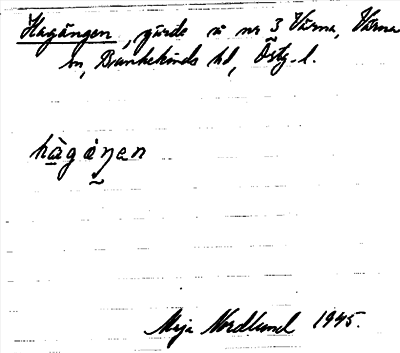 Hagången, gärde å nr 3 Värna, Värna
sn, Bankekinds hd, Östg. l.
hàgåŋen
Maja Nordlund 1945.